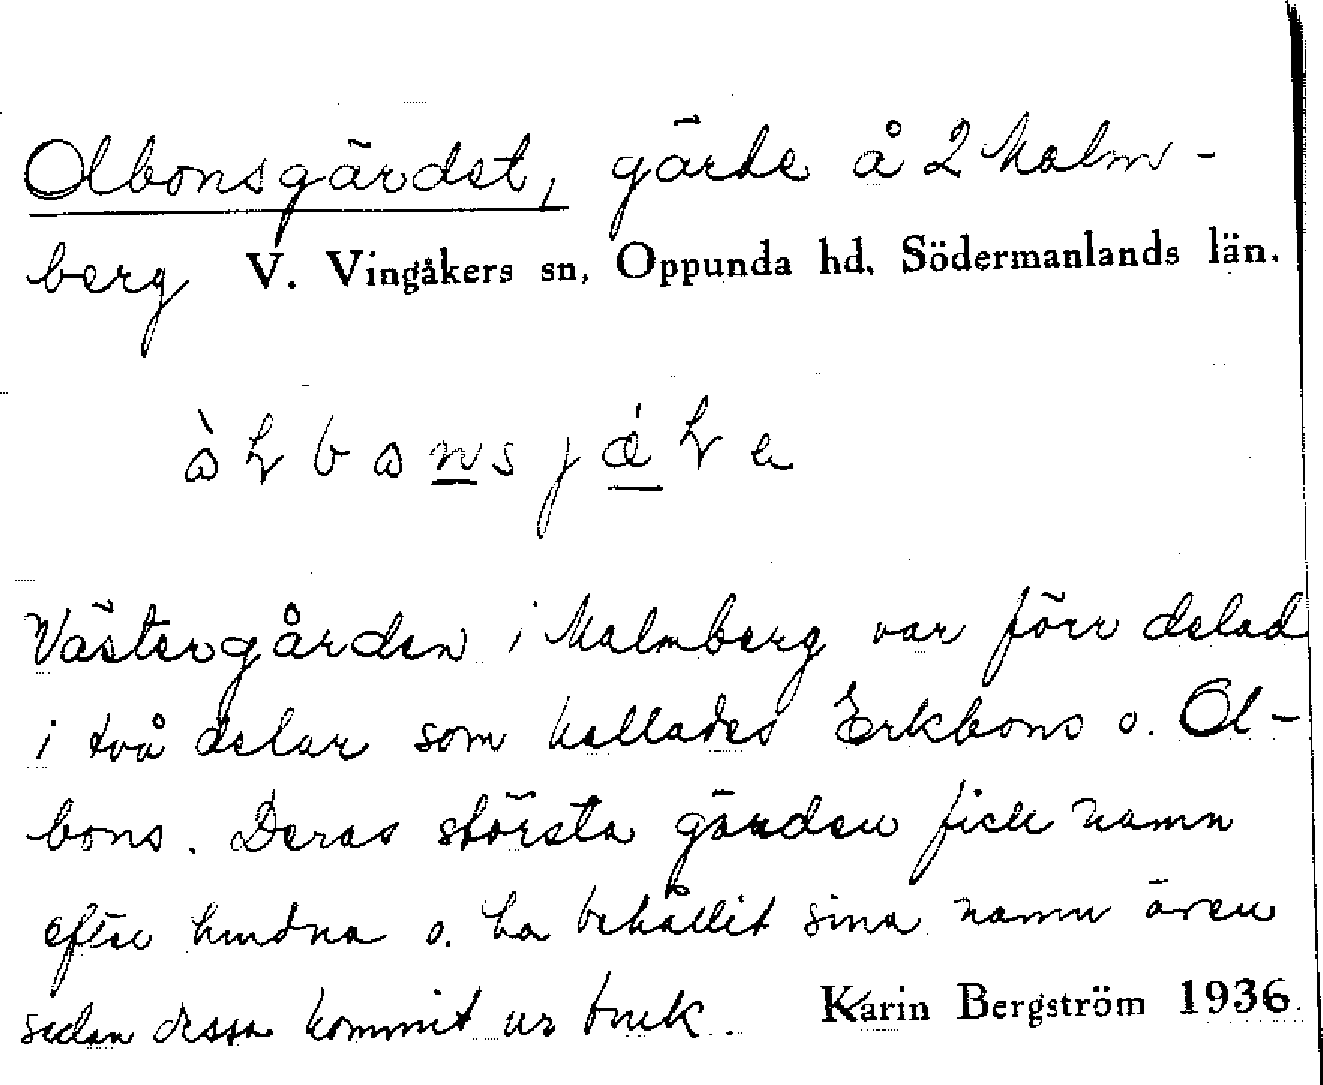 Olbonsgärdet, gärde å 2 Malm-
berg V. Vingåkers sn, Oppunda hd, Södermanlands län.
Västergården i Malmberg var förr delad
i två delar som kallades Erkbons o. Ol-
bons. Deras största gärden fick namn
efter husbna o. ha behållit sina namn även
sedan dessa kommit ur bruk. Karin Bergström 1936